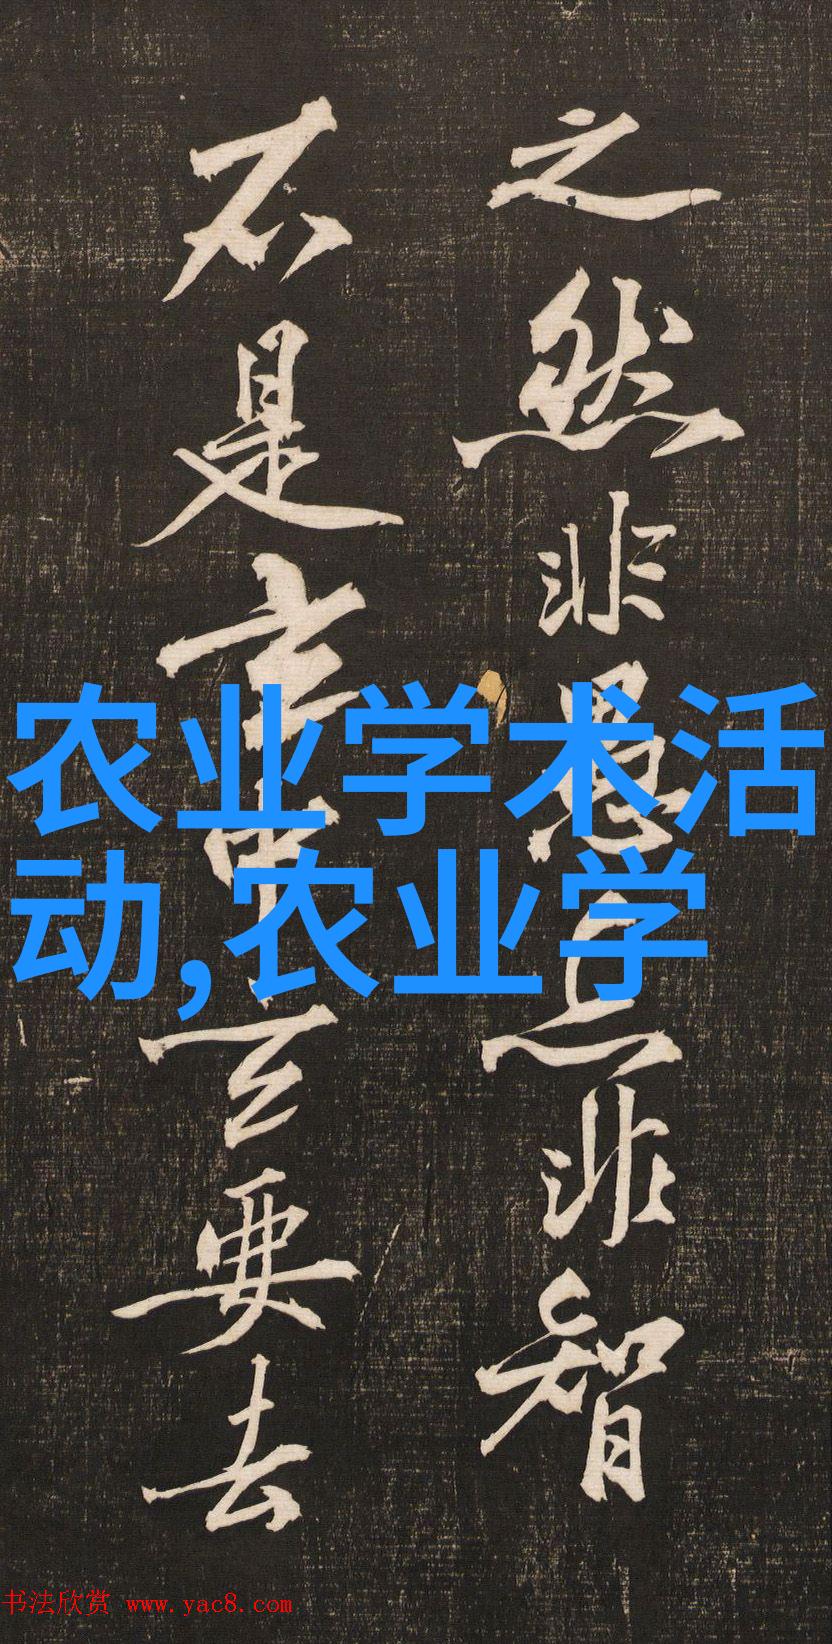 之然非愚非智
不是中要去
农业学术活
动,农业学
书法欣赏 www.yac8.com